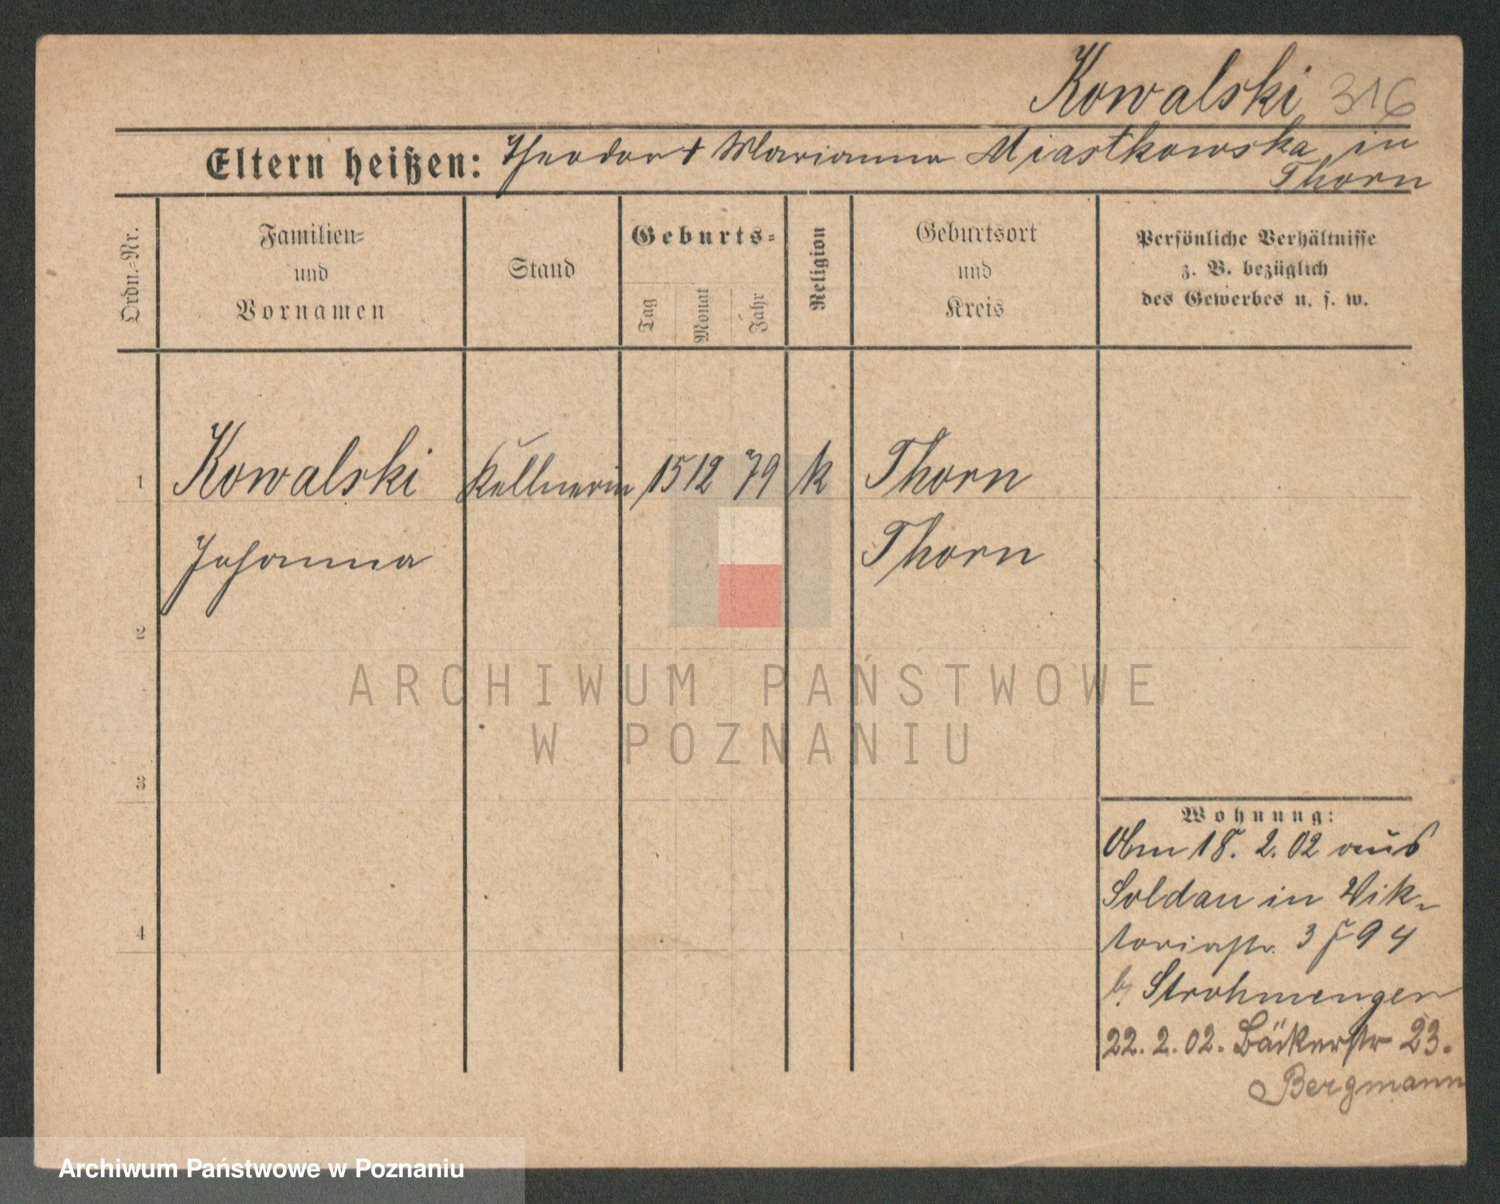 Kowalski 316
Eltern heißen: Theodor + Marianna Miastkowska in
Thorn
Ordn.-Nr.
Familien-
und
Vornamen
Stand
Geburts-
Tag
Monat
Jahr
Religion
Geburtsort
und
Kreis
Persönliche Verhältnisse
z. B. bezüglich
des Gewerbes u. s. w.
1 Kowalski Kellnerin 15 12 79 k Thorn
Johanna Thorn
2
ARCHIWUM PAŃSTWOWE
W POZNANIU
3
Wohnung:
Am 18. 2. 02 aus
Soldau in Vik-
toriastr. 3 94
b. Strohmenger
4
22. 2. 02. Bäckerstr 23.
Bergmann
Archiwum Państwowe w Poznaniu